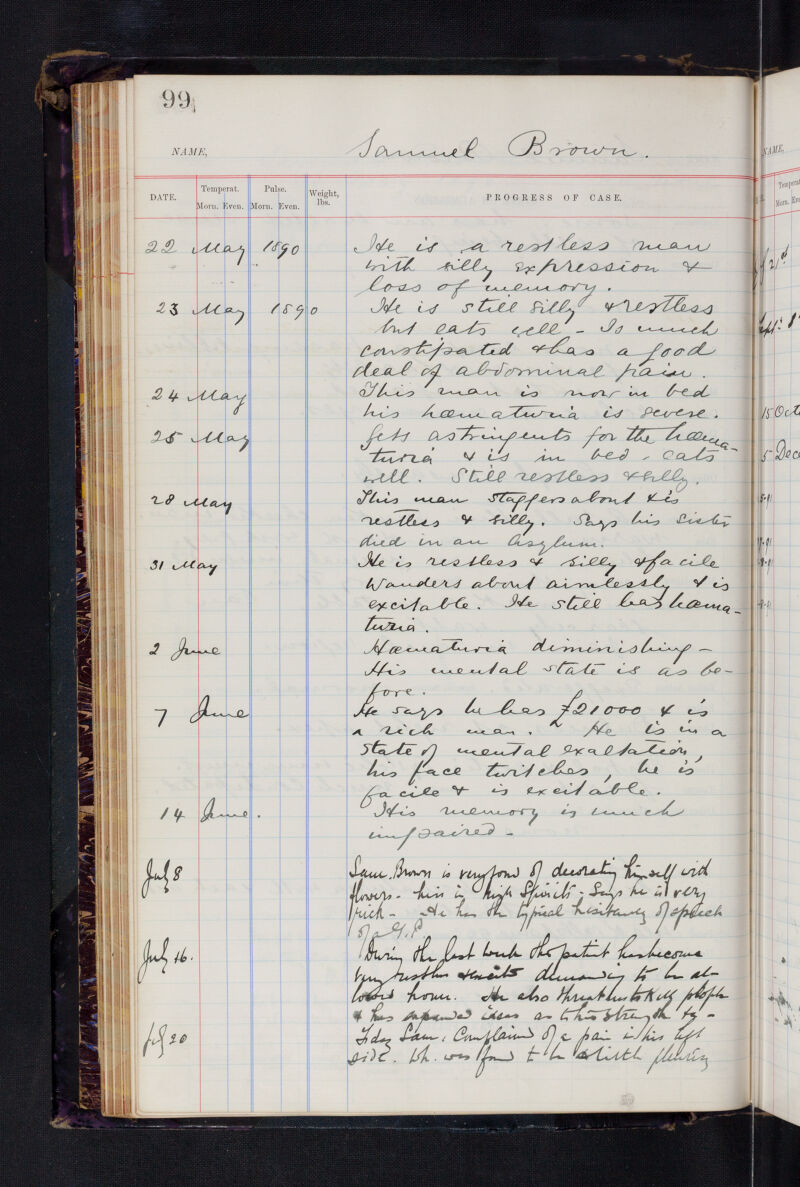 99
NAME, Samuel Brown.
DATE. Temperat. Morn. Even. Pulse. Morn. Even. Weight, lbs. PROGRESS OF CASE.
22 May 1890 He is a restless man
with silly expression &
loss of memory.
23 May 1890 He is still silly & restless
but eats well - Is much
constipated & has a good
deal of abdominal pain.
24 May This man is now in bed
his hæmaturia is severe.
25 May Gets astringents for the hæma-
turia & is in bed - eats
well. Still restless & silly.
28 May This man staggers about & is
restless & silly. Says his sister
died in an Asylum.
31 May He is restless & silly & facile
Wanders about aimlessly & is
excitable. He still has hæma-
turia.
2 June Hæmaturia diminishing -
His mental state is as be-
fore.
7 June He says he has £21000 & is
a rich man. He is in a
state of mental exaltation,
his face twitches, he is
facile & is excitable.
14 June. His memory is much
impaired -
July 8 Sam. Brown is very fond of decorating himself with
flowers - he is in high spirits - Says he is very
rich - He has the typical hesitancy of speech
of a G.P.
July 16. During the last week the patient has become
very restless demanding to be al-
lowed home. He also threatens to kill people
& has expanded ideas as to his strength &c -
July 20 Today Sam. Complained of a pain in his left
side. wh. was found to be a little pleurisy
NAME.
Temperat
Morn. Eve
21st
Sept. 8
15 Octo
5 Dece